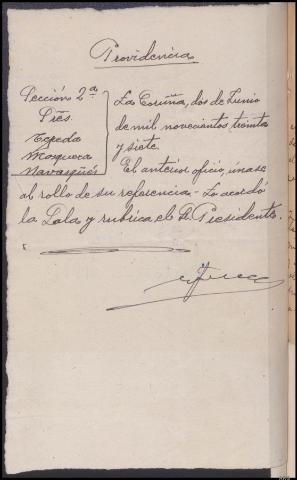 Providencia
Sección 2ª
Pres.
Tejeda
Mosquera
Navasqüés
La Coruña, dos de Junio
de mil novecientos treinta
y siete.
El anterior oficio, únase
al rollo de su referencia - Lo acordó
la Sala y rubrica el Sr Presidente.